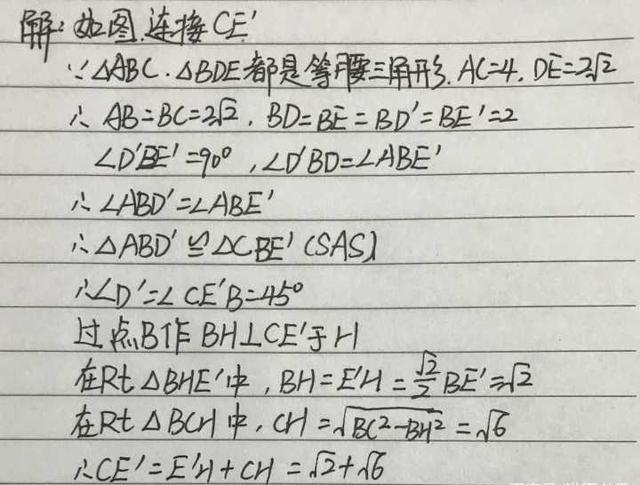 解：如图，连接CE′
∵△ABC．△BDE都是等腰三角形．AC=4．DE=2√2
∴ AB=BC=2√2．BD=BE=BD′=BE′=2
∠D′BE′=90°，∠D′BD=∠ABE′
∴∠ABD′=∠ABE′
∴△ABD′≌△CBE′(SAS)
∴∠D′=∠CE′B=45°
过点B作BH⊥CE′于H
在Rt△BHE′中，BH=E′H=√2/2 BE′=√2
在Rt△BCH中，CH=√(BC²-BH²)=√6
∴CE′=E′H+CH=√2+√6